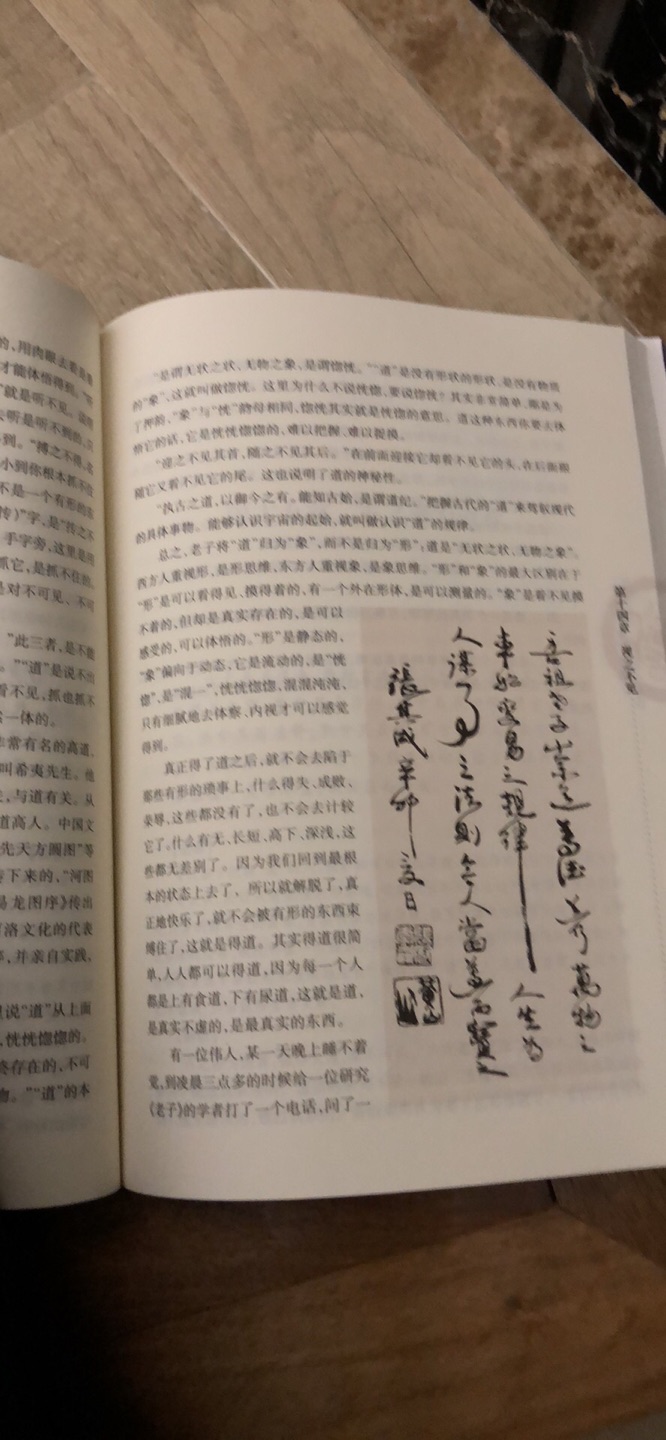 的，用肉眼去要
才能体悟得到。"听
就是听不见。说明
去听是听不到的，只
到。"搏之不得，名
小到你根本抓不住
不是一个有形的东
传）"字，是"抟之不
手字旁，这里是用
抓它，是抓不住的。
是对不可见、不可
"此三者，是不能
。""道"是说不出
看不见，抓也抓不
一体的。
常有名的高道，
叫希夷先生。他
，与道有关。从
道高人。中国文
先天方圆图"等
传下来的，"河图
易龙图序》传出
河洛文化的代表
，并亲自实践，
说"道"从上面
，恍恍惚惚的。
终存在的，不可
物。""道"的本
"是谓无状之状、无物之象，是谓惚恍。""道"是没有形状的形状，是没有物质
的"象"，这就叫做惚恍。这里为什么不说恍惚，要说惚恍？其实非常简单，都是为
了押韵，"象"与"恍"韵母相同，惚恍其实就是恍惚的意思。道这种东西你要去体
悟它的话，它是恍恍惚惚的，难以把握、难以捉摸。
"迎之不见其首，随之不见其后。"在前面迎接它却看不见它的头，在后面跟
随它又看不见它的尾。这也说明了道的神秘性。
"执古之道，以御今之有。能知古始，是谓道纪。"把握古代的"道"来驾驭现代
的具体事物。能够认识宇宙的起始，就叫做认识"道"的规律。
总之，老子将"道"归为"象"，而不是归为"形"；道是"无状之状、无物之象"。
西方人重视形，是形思维，东方人重视象，是象思维。"形"和"象"的最大区别在于
"形"是可以看得见、摸得着的，有一个外在形体，是可以测量的。"象"是看不见摸
不着的，但却是真实存在的，是可以
感受的，可以体悟的。"形"是静态的，
"象"偏向于动态，它是流动的，是"恍
惚"，是"混一"，恍恍惚惚，混混沌沌，
只有细腻地去体察、内视才可以感觉
得到。
真正得了道之后，就不会去陷于
那些有形的琐事上，什么得失、成败、
荣辱，这些都没有了，也不会去计较
它了。什么有无、长短、高下、深浅，这
些都无差别了。因为我们回到最根
本的状态上去了，所以就解脱了，真
正地快乐了，就不会被有形的东西束
缚住了，这就是得道。其实得道很简
单，人人都可以得道，因为每一个人
都是上有食道，下有尿道，这就是道，
是真实不虚的，是最真实的东西。
有一位伟人，某一天晚上睡不着
觉，到凌晨三点多的时候给一位研究
《老子》的学者打了一个电话，问了一
萬物之
變易之規律 人生为
人 之法則 人當
張其成辛卯 日
第十四章 视之不见